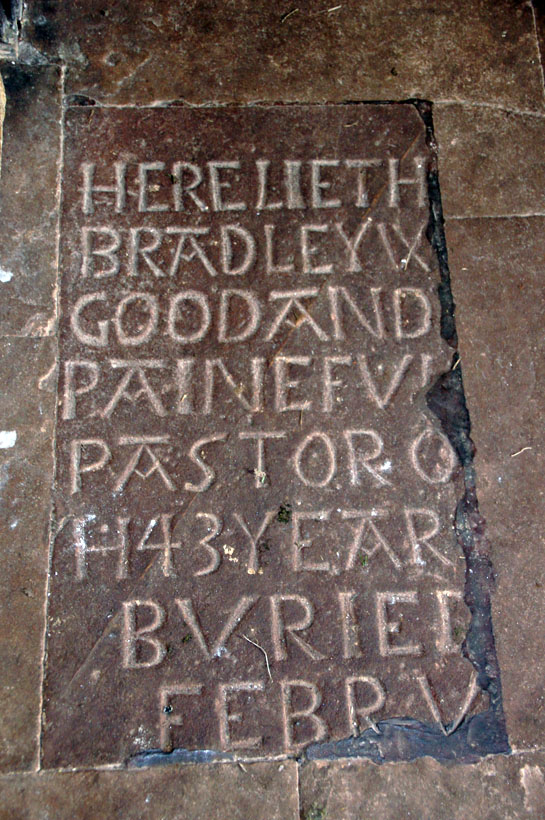 HERE LIETH
BRADLEY
GOOD AND
PAINEFVL
PASTOR O
H 43 YEAR
BVRIED
FEBR V